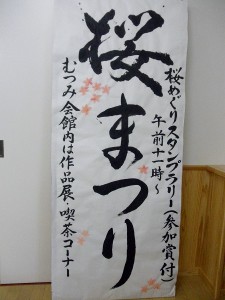 桜まつり
桜めぐりスタンプラリー(参加賞付)
午前十一時～
むつみ会館内は作品展・喫茶コーナー